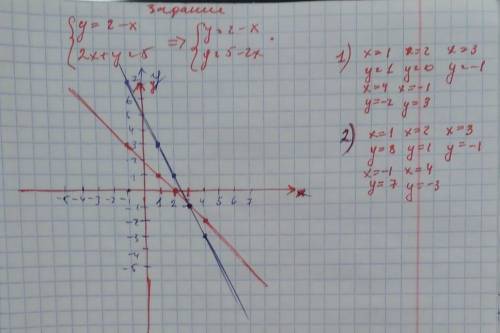 Задание
{ y = 2 - x => { y = 2 - x
{ 2x + y = 5 { y = 5 - 2x
1) x = 1 x = 2 x = 3
y = 1 y = 0 y = -1
x = 4 x = -1
y = -2 y = 3
2) x = 1 x = 2 x = 3
y = 3 y = 1 y = -1
x = -1 x = 4
y = 7 y = -3
y
y
7
6
5
4
3
2
1
-5 -4 -3 -2 -1 1 2 3 4 5 6 7 x
-1
-2
-3
-4
-5